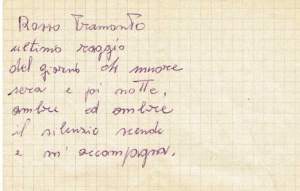 Rosso Tramonto
ultimo raggio
del giorno che muore
sera e poi notte,
ombre ed ombre
il silenzio scende
e m'accompagna.